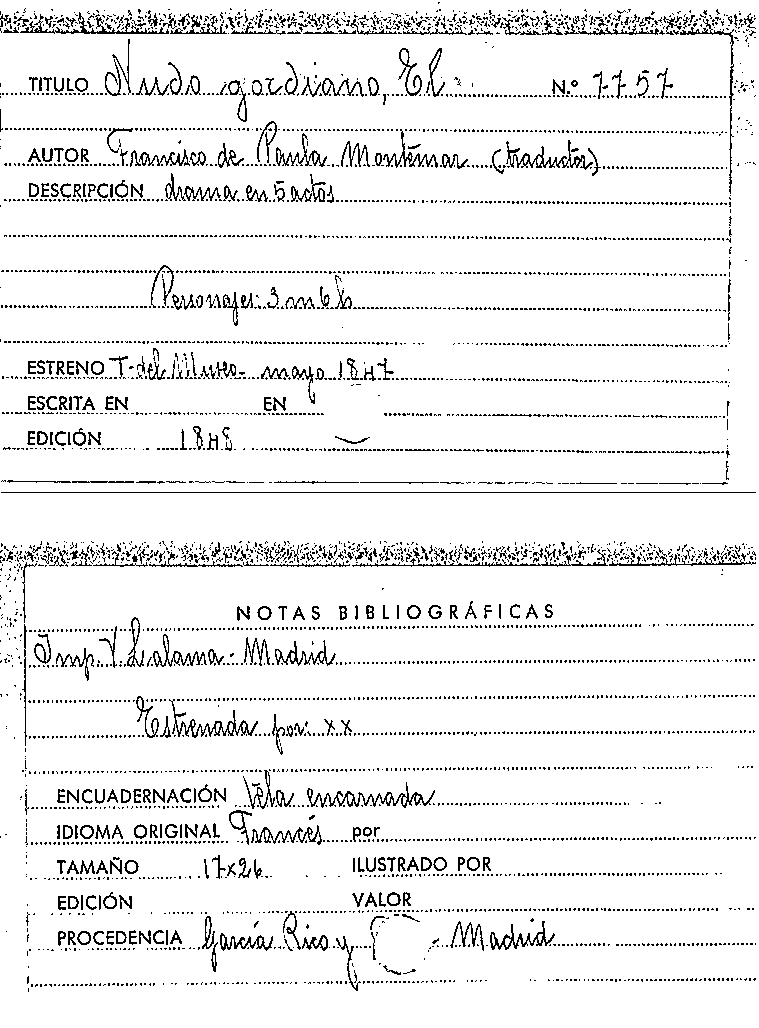 TITULO Nudo gordiano, El N.º 7757
AUTOR Francisco de Paula Montemar (traductor)
DESCRIPCIÓN drama en 5 actos
Personajes: 3 m 6 h
ESTRENO T. del Museo - mayo 1847
ESCRITA EN EN
EDICIÓN 1848
NOTAS BIBLIOGRÁFICAS
Imp. V. Lalama - Madrid
Estrenada por: xx
ENCUADERNACIÓN tela encarnada
IDIOMA ORIGINAL Francés por
TAMAÑO 17x26 ILUSTRADO POR
EDICIÓN VALOR
PROCEDENCIA García Rico y - Madrid